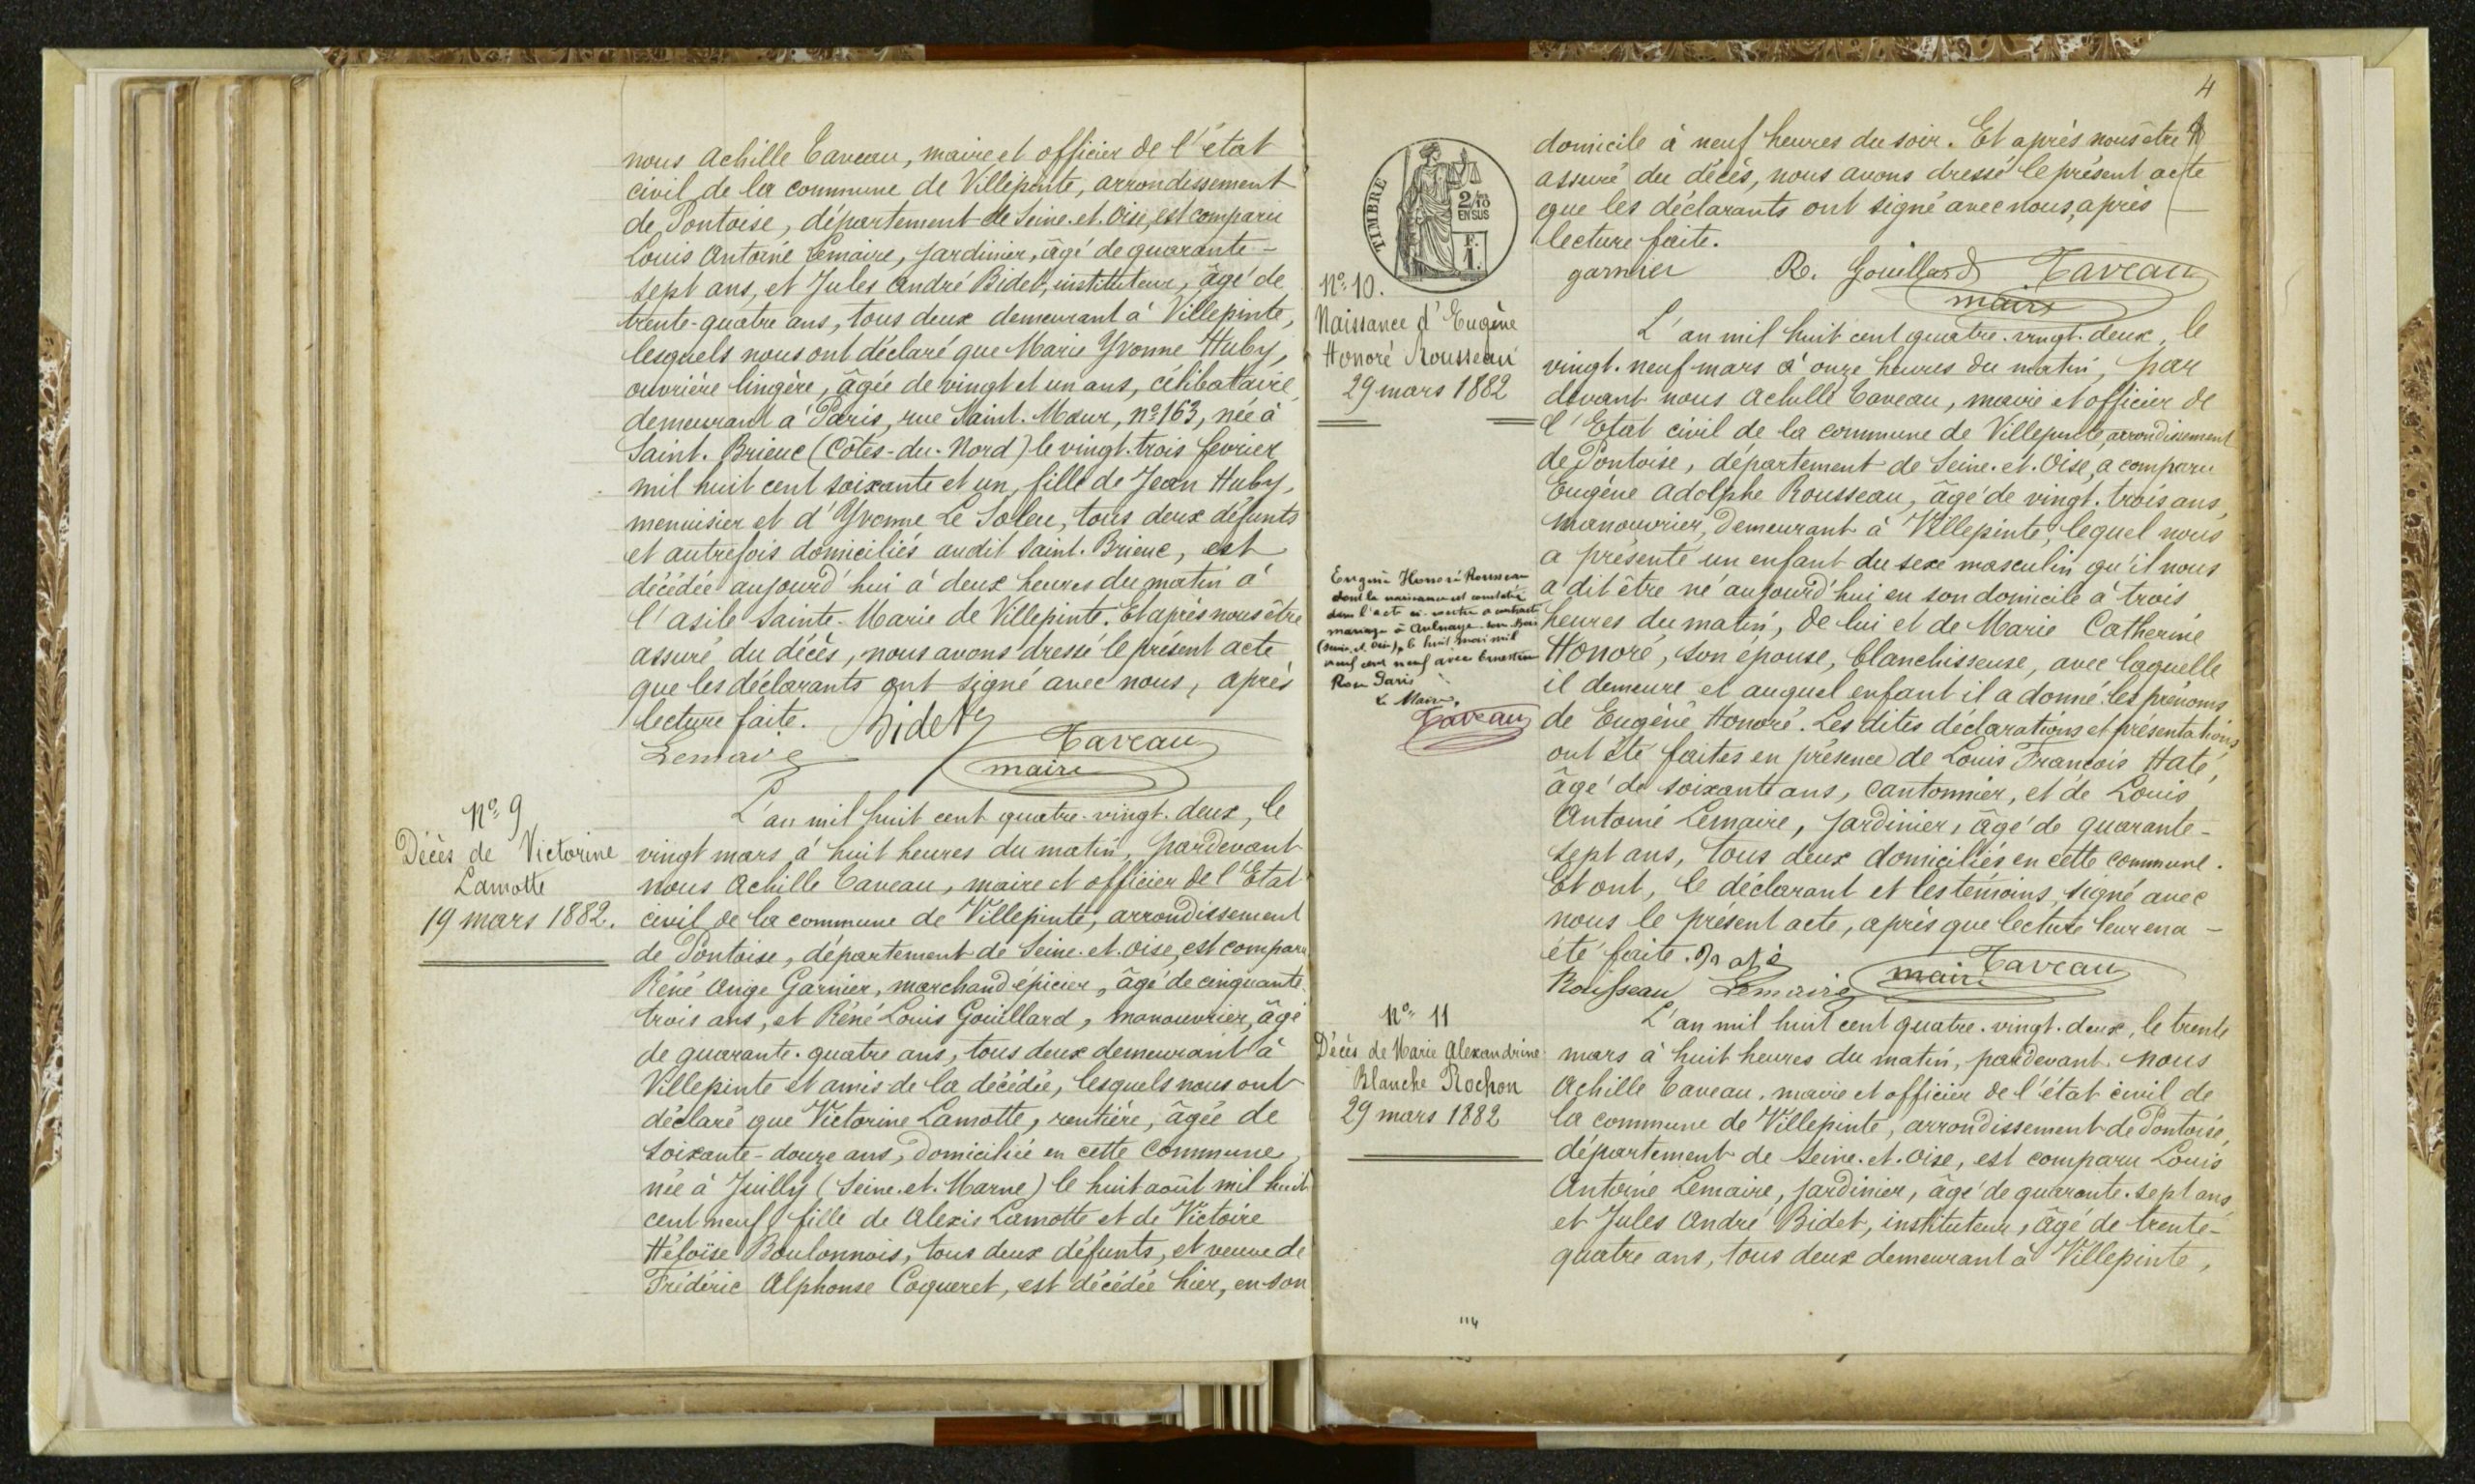 nous Achille Taveau, maire et officier de l'état
civil de la commune de Villepinte, arrondissement
de Pontoise, département de Seine-et-Oise, est comparu
Louis Antoine Lemaire, jardinier, âgé de quarante-
sept ans, et Jules André Bidet, instituteur, âgé de
trente-quatre ans, tous deux demeurant à Villepinte,
lesquels nous ont déclaré que Marie Yvonne Huby,
ouvrière lingère, âgée de vingt et un ans, célibataire,
demeurant à Paris, rue Saint-Maur, nº 163, née à
Saint-Brieuc (Côtes-du-Nord) le vingt-trois fevrier
mil huit cent soixante et un, fille de Jean Huby,
menuisier et d'Yvonne Le Soleu, tous deux défunts
et autrefois domiciliés audit Saint-Brieuc, est
décédée aujourd'hui à deux heures du matin à
l'asile Sainte-Marie de Villepinte. Et après nous être
assuré du décès, nous avons dressé le présent acte
que les déclarants ont signé avec nous, après
lecture faite. Bidet
Lemaire Taveau
maire
Nº 9
Décès de Victorine
Lamotte
19 mars 1882.
L'an mil huit cent quatre-vingt-deux, le
vingt mars à huit heures du matin, pardevant
nous Achille Taveau, maire et officier de l'Etat
civil de la commune de Villepinte, arrondissement
de Pontoise, département de Seine-et-Oise, est comparu
Réné Ange Garnier, marchand épicier, âgé de cinquante-
trois ans, et Réné Louis Gouillard, manouvrier, âgé
de quarante-quatre ans, tous deux demeurant à
Villepinte et amis de la décédée, lesquels nous ont
déclaré que Victorine Lamotte, rentière, âgée de
soixante-douze ans, domiciliée en cette commune,
née à Juilly (Seine-et-Marne) le huit août mil huit
cent neuf, fille de Alexis Lamotte et de Victoire
Héloïse Boulonnois, tous deux défunts, et veuve de
Frédéric Alphonse Coqueret, est décédée hier, en son
4
domicile à neuf heures du soir. Et après nous être
assuré du décès, nous avons dressé le présent acte
que les déclarants ont signé avec nous, après
lecture faite.
garnier R. Gouillard Taveau
maire
TIMBRE
2/10
EN SUS
F.
1.
Nº 10.
Naissance d'Eugène
Honoré Rousseau
29 mars 1882
L'an mil huit cent quatre-vingt-deux, le
vingt-neuf mars à onze heures du matin, par
devant nous Achille Taveau, maire et officier de
l'Etat civil de la commune de Villepinte, arrondissement
de Pontoise, département de Seine-et-Oise, a comparu
Eugène Adolphe Rousseau, âgé de vingt-trois ans,
manouvrier, demeurant à Villepinte, lequel nous
a présenté un enfant du sexe masculin qu'il nous
a dit être né aujourd'hui en son domicile à trois
heures du matin, de lui et de Marie Catherine
Honoré, son épouse, blanchisseuse, avec laquelle
il demeure et auquel enfant il a donné les prénoms
de Eugène Honoré. Les dites déclarations et présentations
ont été faites en présence de Louis François Haté,
âgé de soixante ans, cantonnier, et de Louis
Antoine Lemaire, jardinier, âgé de quarante-
sept ans, tous deux domiciliés en cette commune.
Et ont, le déclarant et les témoins, signé avec
nous le présent acte, après que lecture leur en a
été faite. Haté
Rousseau Lemaire maire Taveau
Eugène Honoré Rousseau
dont la naissance est constatée
dans l'acte ci-contre a contracté
mariage à Aulnay-sous-Bois
(Seine-et-Oise), le huit mai mil
neuf cent neuf avec Ernestine
Rose Paris
Le Maire,
Taveau
Nº 11
Décès de Marie Alexandrine
Blanche Rochon
29 mars 1882
L'an mil huit cent quatre-vingt-deux, le trente
mars à huit heures du matin, pardevant nous
Achille Taveau, maire et officier de l'état civil de
la commune de Villepinte, arrondissement de Pontoise,
département de Seine-et-Oise, est comparu Louis
Antoine Lemaire, jardinier, âgé de quarante-sept ans
et Jules André Bidet, instituteur, âgé de trente-
quatre ans, tous deux demeurant à Villepinte,